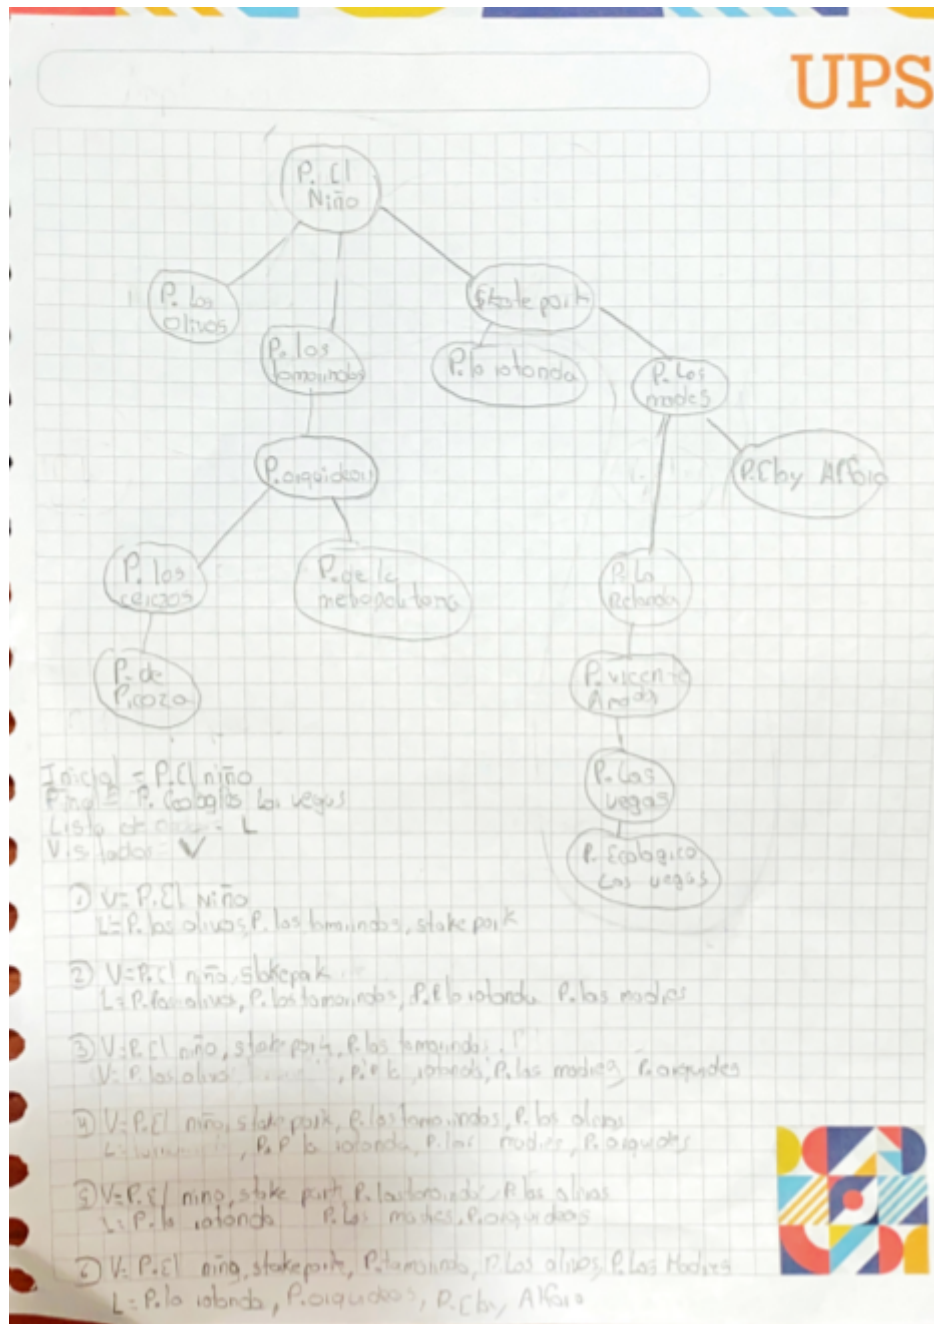 UPS
P. El
Niño
P. Los
Olivos
Skate park
P. los
tamarindos
P. la rotonda
P. Los
madres
P. orquideas
P. Eloy Alfaro
P. los
cerezos
P. de la
metropolitana
P. La
Rotonda
P. de
Picoza
P. vicente
Amador
P. Las
vegas
P. Ecologico
Las vegas
Inicial = P. El niño
Final = P. Ecologico Las vegas
Lista de = L
Visitados = V
① V= P. El Niño
L= P. los olivos, P. los tamarindos, skate park
② V= P. El niño, skatepark
L= P. Los olivos, P. los tamarindos, P. la rotonda P. las madres
③ V= P. El niño, skate park, P. los tamarindos
V= P. los olivo , rotonda, P. las madres, P. orquides
④ V= P. El niño, skate park, P. los tamarindos, P. los olivos
L= , P. P la rotonda, P. las madres, P. orquides
⑤ V= P. El nino, skate park, P. los tamarindos, P. los olivos
L= P. la rotonda P. Las madres, P. orquideas
⑥ V= P. El niño, skatepark, P. tamarindo, P. Los olivos, P. Las Madres
L= P. la rotonda, P. orquideas, P. Eloy Alfaro